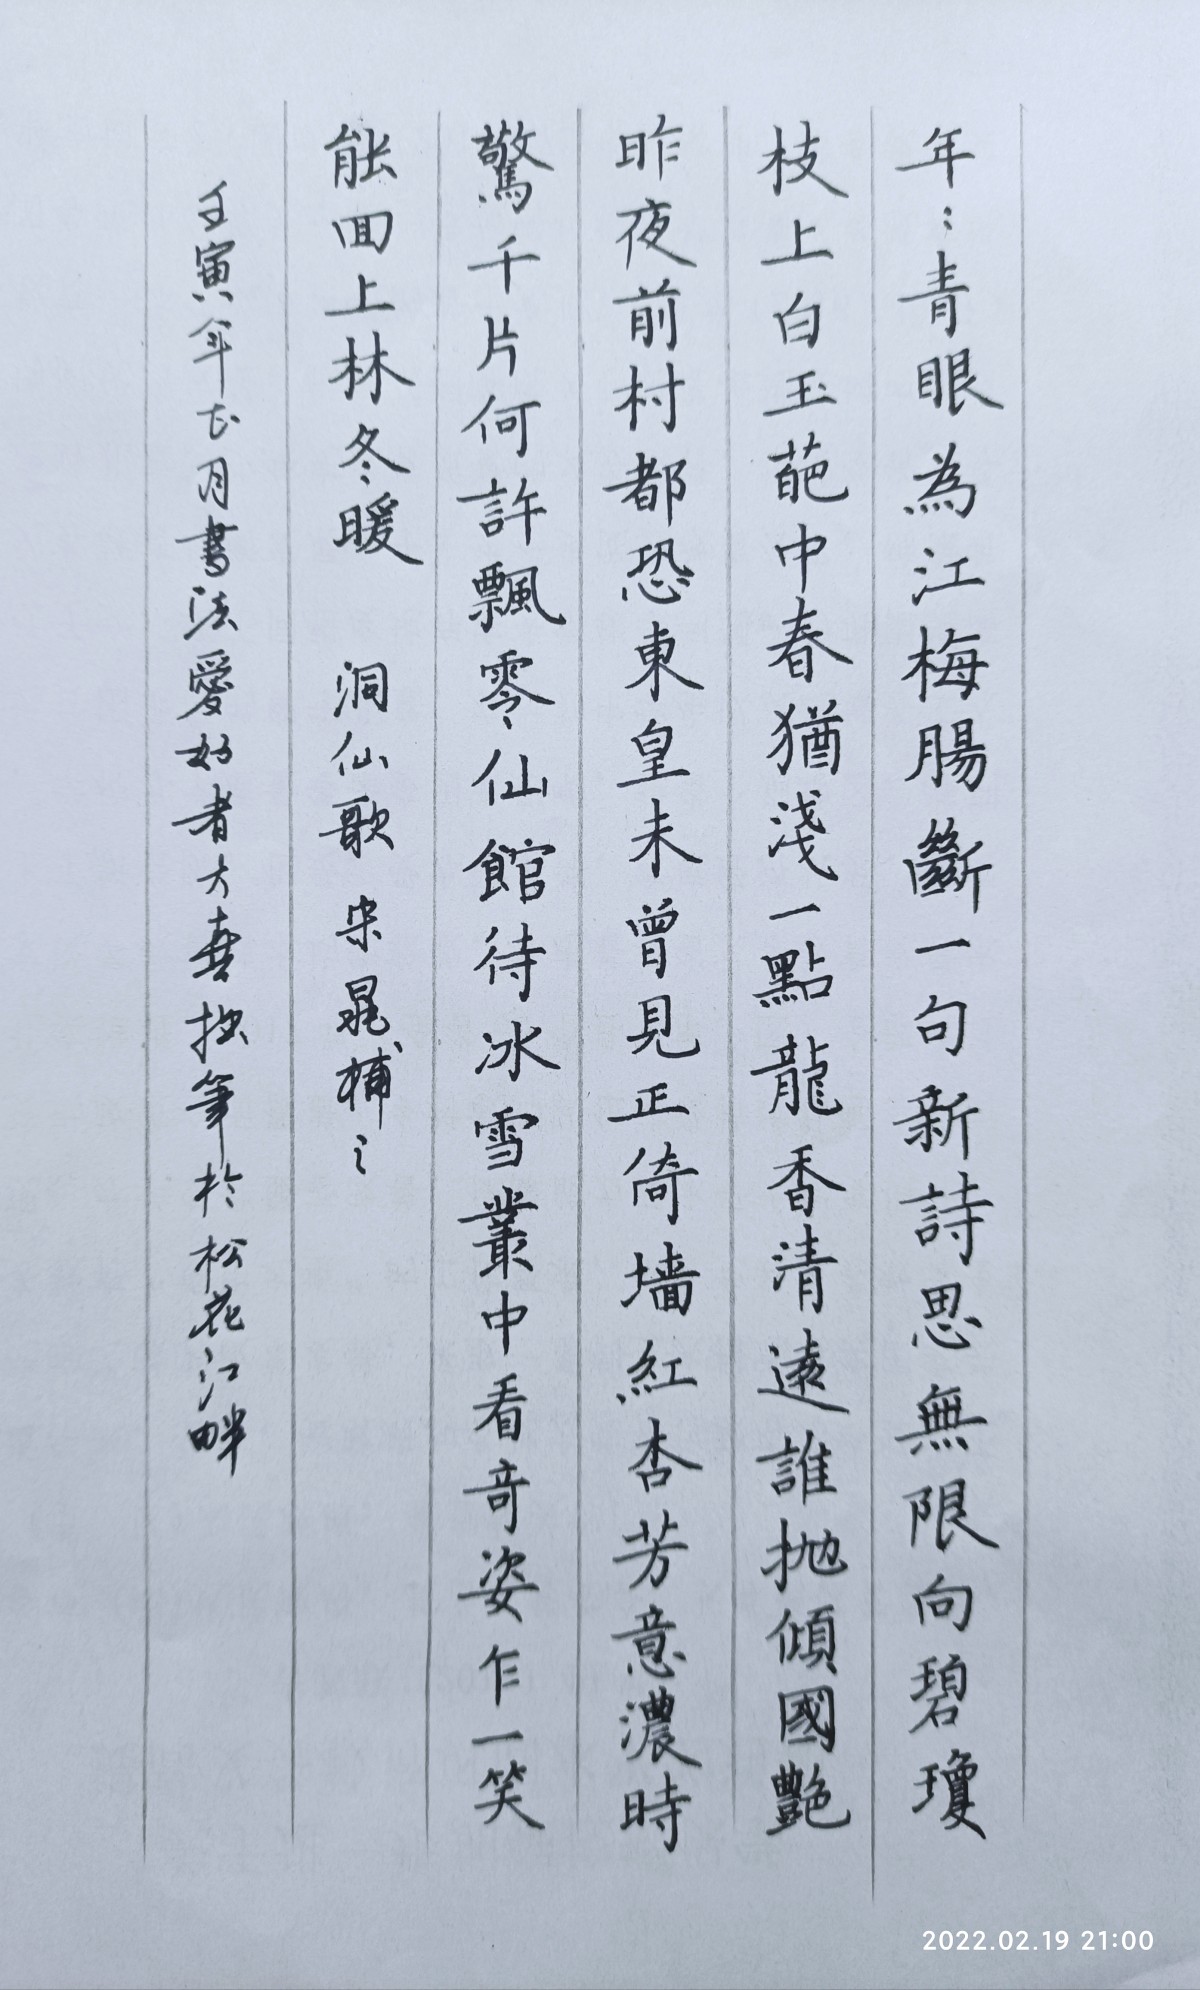 年:青眼為江梅腸斷一句新詩思無限向碧瓊
枝上白玉葩中春猶淺一點龍香清遠誰拋傾國艷
昨夜前村都恐東皇未曾見正倚墻紅杏芳意濃時
驚千片何許飄零仙館待冰雪叢中看奇姿乍一笑
能回上林冬暖 洞仙歌 宋晁補之
壬寅年正月書法愛好者大喜拙筆於松花江畔
2022.02.19 21:00